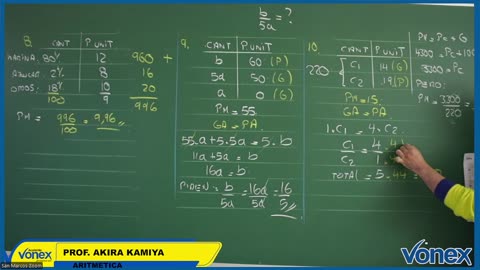 b/5a = ?
8
CANT P. UNIT
HARINA: 80% 12 960 +
AZUCAR: 2% 8 16
OTROS: 18% 10 20
100 996
PM = 996/100 = 9,96
9.
CANT P. UNIT
b 60 (P)
5a 50 (G)
a 0 (G)
PM = 55
GA = PA
55.a + 5.5a = 5.b
11a + 5a = b
16a = b
PIDEN = b/5a = 16a/5a = 16/5
10.
CANT P. UNIT
220 C1 14 (G)
C2 19 (P)
PM = 15
GA = PA
1.C1 = 4.C2
C1/C2 = 4
TOTAL = 5.44 =
PV = PC + G
3300 = PC
PERO:
PM = 3300/220
San Marcos Zoom
VONEX
PROF. AKIRA KAMIYA
ARITMETICA
VONEX